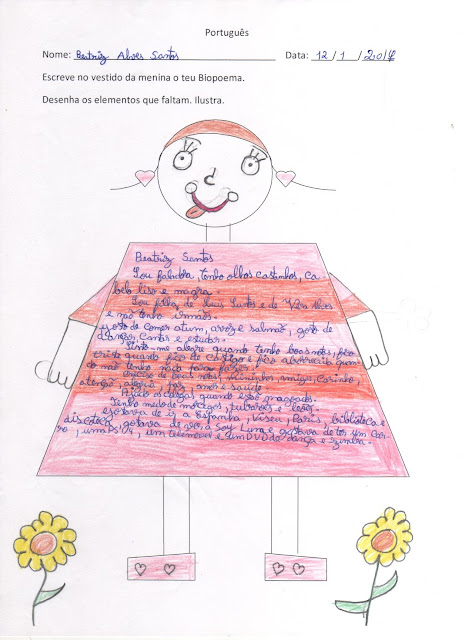 Português
Nome: Beatriz Alves Santos Data: 12 / 1 / 2017
Escreve no vestido da menina o teu Biopoema.
Desenha os elementos que faltam. Ilustra.
Beatriz Santos
Sou faladora, tenho olhos castanhos, ca
belo liso e magra.
Sou filha de Santos e de Alves
e não tenho irmãos.
gosto de comer atum, arroz e salmão, gosto de
dançar, cantar e estudar.
Sinto-me alegre quando tenho boas notas, fico
triste quando fico de castigo e fico aborrecida quan-
do não tenho nada para fazer.
de boas notas, miminhos, amigos, carinho
atenção, alegria, paz, amor e saúde.
quando estão magoados.
Tenho medo de morcegos, tubarões e
gostava de ir a Espanha, Viseu, Paris, biblioteca e
discoteca, gostava de ver a Soy Luna e gostava de ter um car-
ro, uma , um telemóvel e um DVD de dança e zumba.